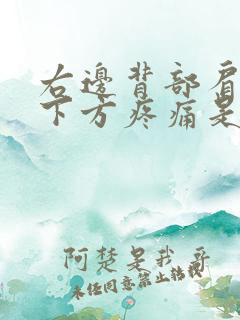 右邊背部肩
下方疼痛是
阿楚是我哥
未經同意禁止轉載